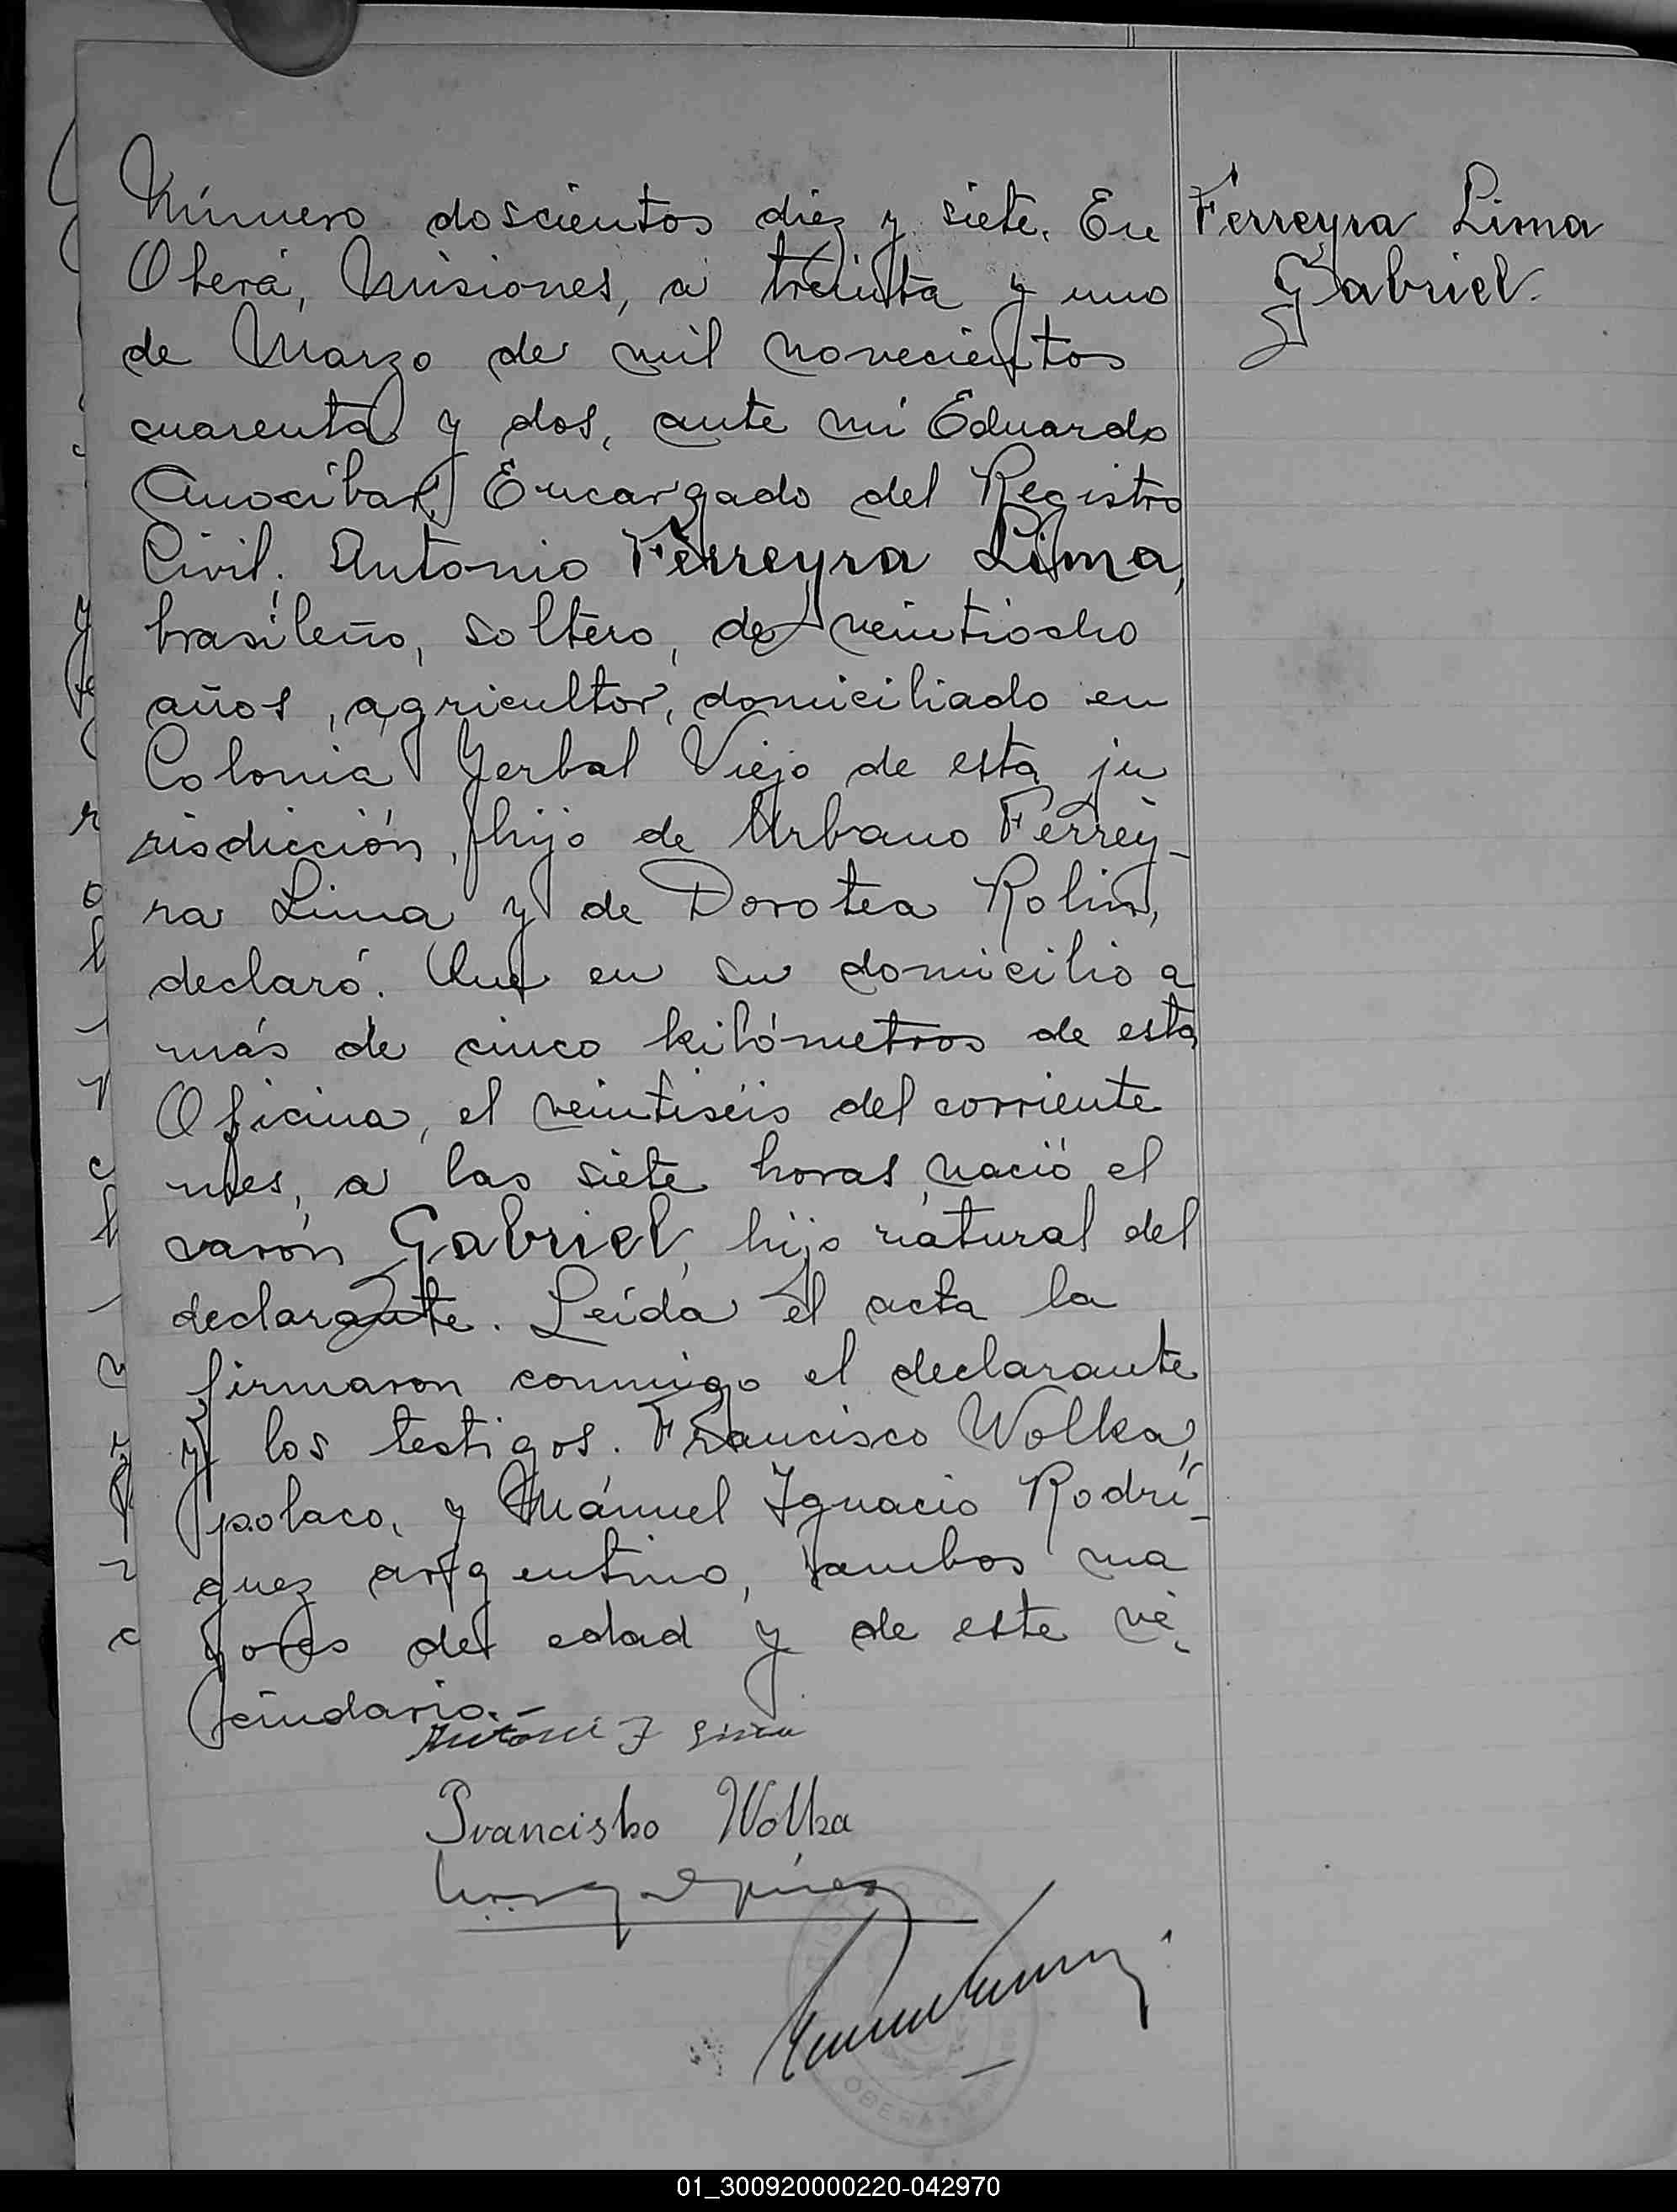 Número doscientos diez y siete. En
Oberá, Misiones, a treinta y uno
de Marzo de mil novecientos
cuarenta y dos, ante mi Eduardo
Anocibar, Encargado del Registro
Civil. Antonio Ferreyra Lima,
brasileño, soltero, de veintiocho
años, agricultor, domiciliado en
Colonia Yerbal Viejo de esta ju
risdicción, hijo de Urbano Ferrey-
ra Lima y de Dorotea Rolin,
declaró. Que en su domicilio a
más de cinco kilómetros de esta
Oficina, el veintiseis del corriente
mes, a las siete horas, nació el
varón Gabriel, hijo natural del
declarante. Leída el acta la
firmaron conmigo el declarante
y los testigos. Francisco Wolka,
polaco, y Manuel Ignacio Rodrí-
guez argentino, ambos ma
yores de edad y de este ve-
cindario.-
Ferreyra Lima
Gabriel.
Francisko Wolka
OBERA
01_300920000220-042970